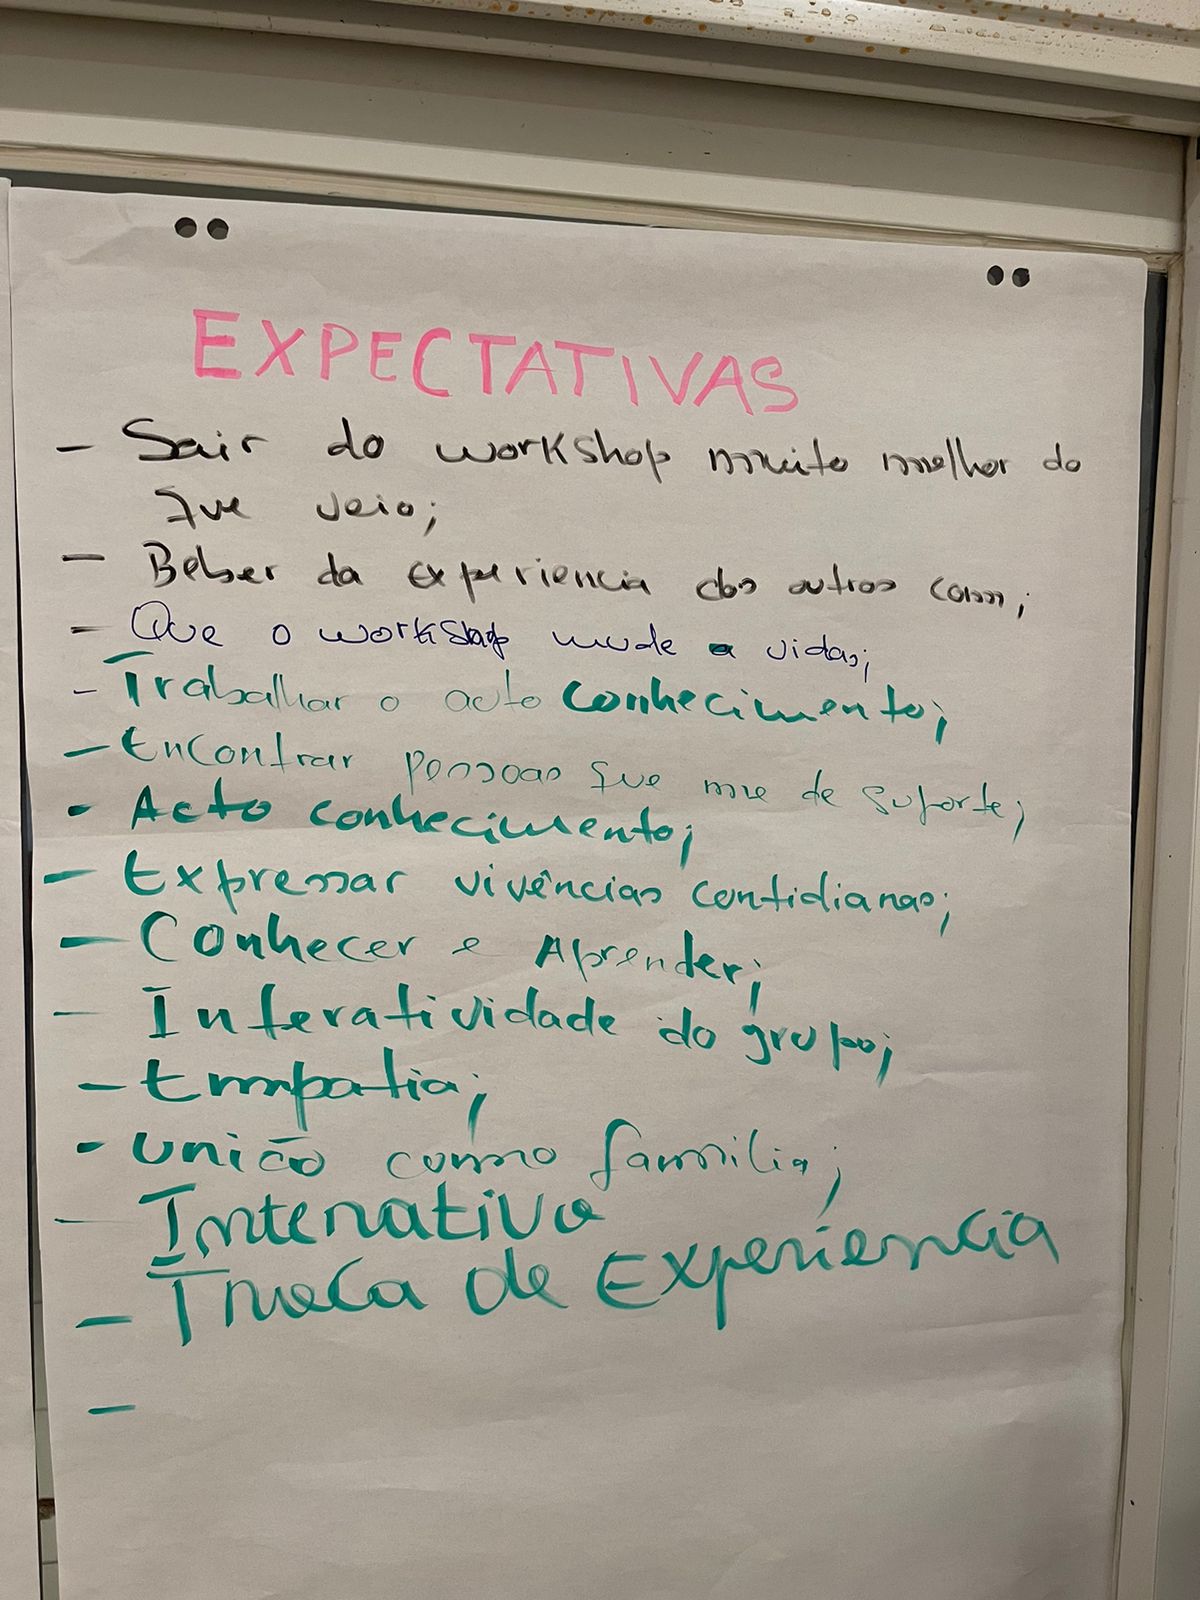 EXPECTATIVAS
- Sair do workshop muito melhor do
que veio;
- Beber da experiencia dos outros com;
- Que o workshop mude a vidas;
- Trabalhar o acto conhecimento;
- Encontrar pessoas que me de suporte;
- Acto conhecimento;
- Expressar vivências contidianas;
- Conhecer e Aprender;
- Interatividade do grupo;
- Empatia;
- União como familia;
- Interativo
- Troca de Experiencia
-